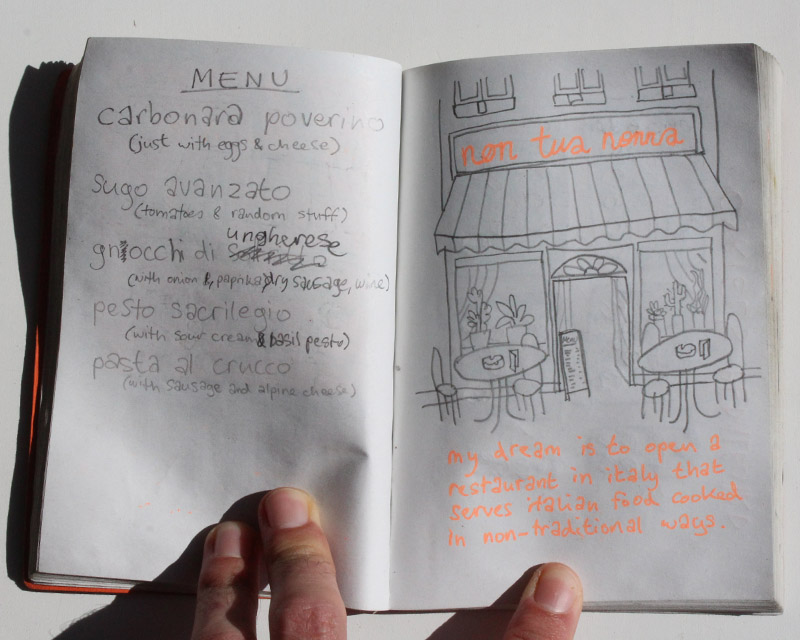 MENU
carbonara poverino
(just with eggs & cheese)
sugo avanzato
(tomatoes & random stuff)
ungherese
gnocchi di
(with onion &, paprika, dry sausage, wine)
pesto sacrilegio
(with sour cream & basil pesto)
pasta al crucco
(with sausage and alpine cheese)
non tua nonna
my dream is to open a
restaurant in italy that
serves italian food cooked
in non-traditional ways.